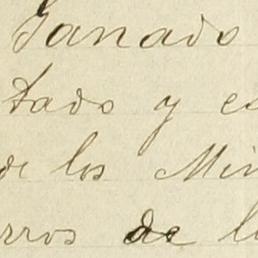 Ganado
tado y co
de los Min
rros de l